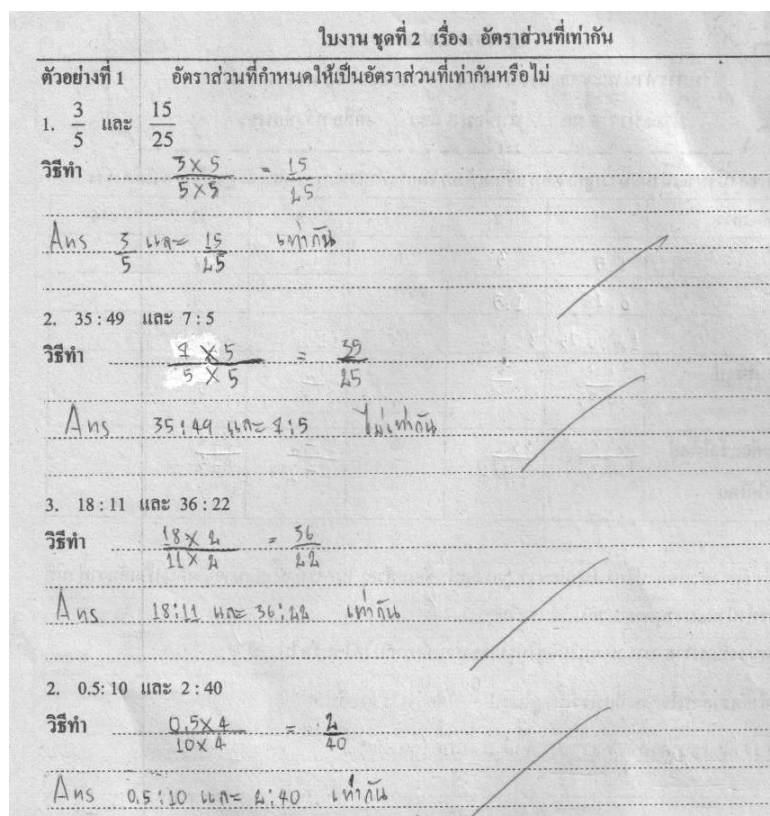 ใบงาน ชุดที่ 2 เรื่อง อัตราส่วนที่เท่ากัน
ตัวอย่างที่ 1 อัตราส่วนที่กำหนดให้เป็นอัตราส่วนที่เท่ากันหรือไม่
1. 3/5 และ 15/25
วิธีทำ 3 × 5 / 5 × 5 = 15/25
Ans 3/5 และ 15/25 เท่ากัน
2. 35 : 49 และ 7 : 5
วิธีทำ 7 × 5 / 5 × 5 = 35/25
Ans 35:49 และ 7:5 ไม่เท่ากัน
3. 18 : 11 และ 36 : 22
วิธีทำ 18 × 2 / 11 × 2 = 36/22
Ans 18:11 และ 36:22 เท่ากัน
2. 0.5 : 10 และ 2 : 40
วิธีทำ 0.5 × 4 / 10 × 4 = 2/40
Ans 0.5:10 และ 2:40 เท่ากัน